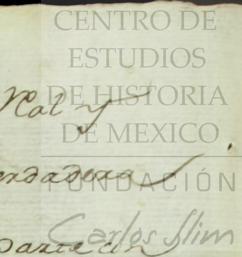 CENTRO DE
ESTUDIOS
DE HISTORIA
DE MEXICO
FUNDACIÓN
Carlos Slim
Ral y
erdadera